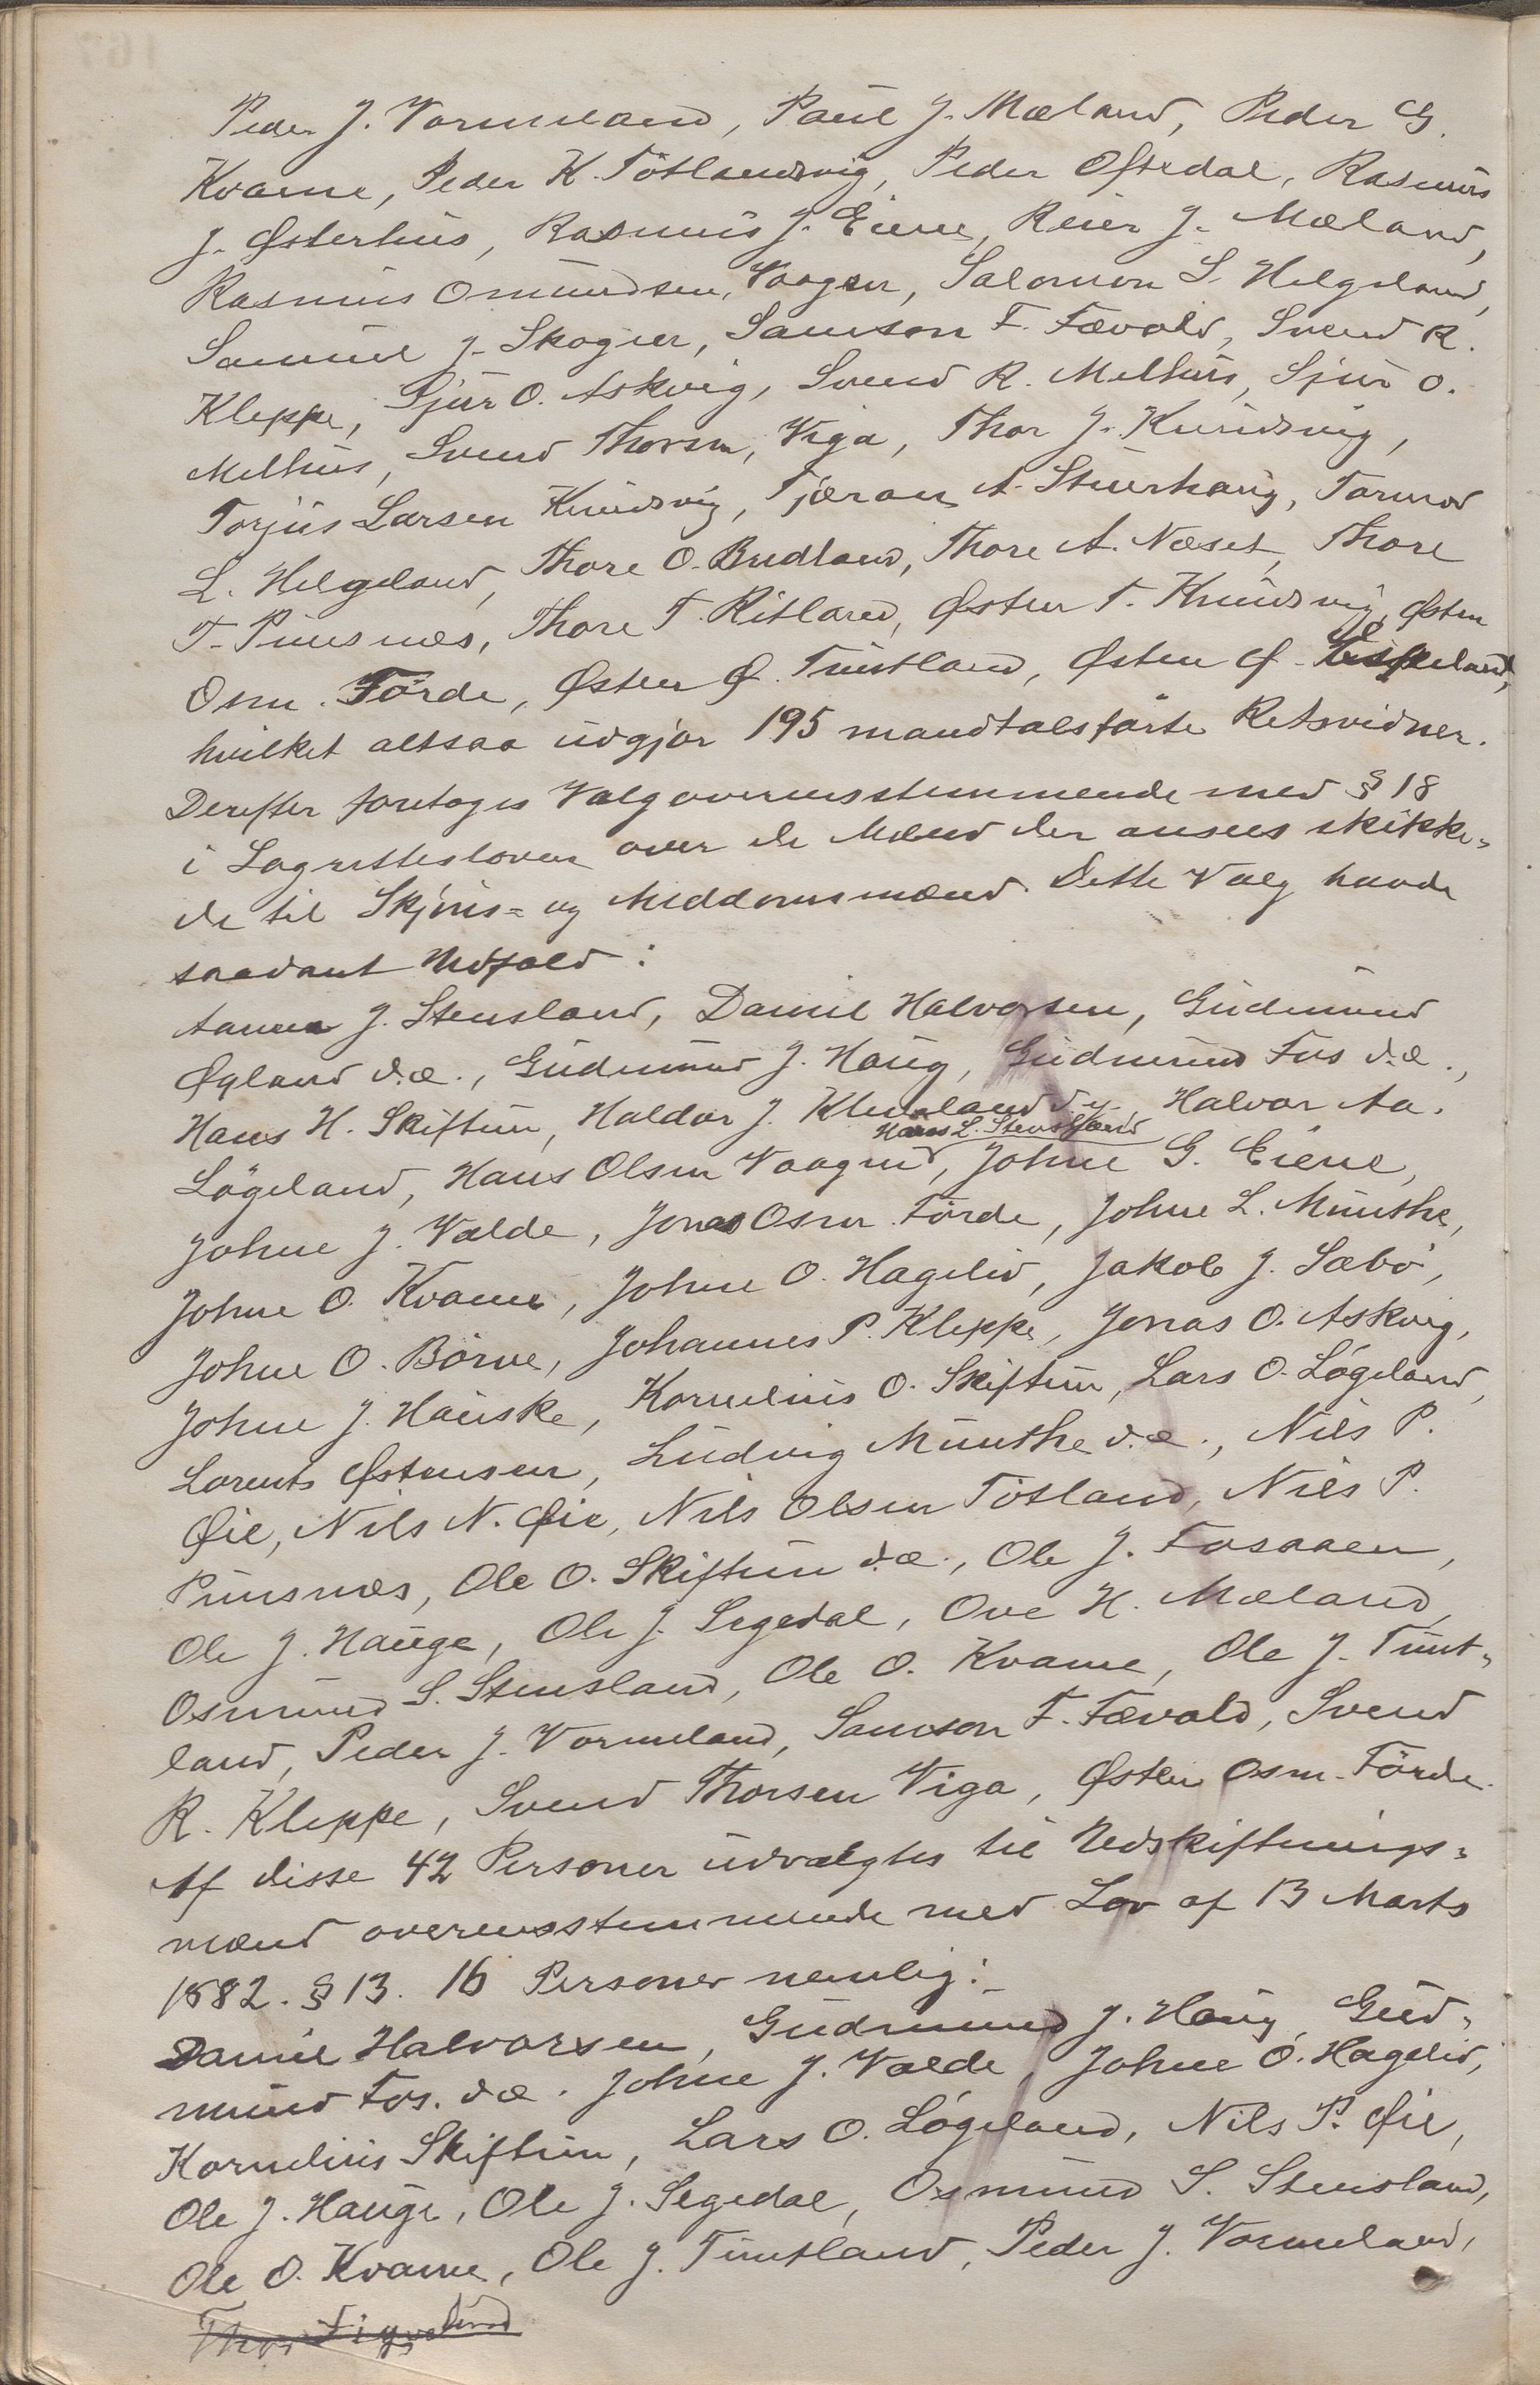 Peder J. Vormeland, Paul J. Mæland, Peder G.
Kvame, Peder K. Tötlandsvig, Peder Oftedal, Rasmus
J. Østerhus, Rasmus J. Eiene, Reier J. Mæland,
Rasmus Omundsen, Vaagen, Salomon S. Helgeland,
Samuel J. Skogen, Samson F. Fævold, Svend R.
Kleppe, Sjur O. Askvig, Svend R. Melhus, Sjur O.
Melhus, Svend Thorsen, Viga, Thor J. Knudsvig,
Torjus Larsen Knudsvig, Tjæran A. Stuerhaug, Tormod
L. Helgeland, Thore O. Bredland, Thore A. Næset, Thore
T. Punsnes, Thore T. Ritland, Østen T. Knudsvig, Østen
Osm. Förde, Østen Ø. Tuntland, Østen Ø.
hvilket altsaa udgjør 195 mandtalsförte Retsvidner.
Derefter foretoges Valg overensstemmende med § 18
i Lagretteslovene over de Mænd der ansees skikke-
de til Skjöns- og Meddomsmænd. Dette Valg havde
saadant Udfald:
Aanen J. Stensland, Daniel Halvorsen, Gudmund
Øyland d.æ., Gudmund J. Haug, Gudmund Fos d.æ.,
Hans H. Skiftun, Haldor J. Kleveland d.y. Halvor Aa.
Hans L. Stensland
Lögeland, Hans Olsen Vaagend, Johne G. Eiene,
Johne J. Valde, Jonas Osm. Förde, Johne L. Munthe,
Johne O. Kvame, Johne O. Hagelid, Jakob J. Sæbö,
Johne O. Börve, Johannes P. Kleppe, Jonas O. Askvig,
Johne J. Hauske, Kornelius O. Skiftun, Lars O. Lögeland,
Lorents Østensen, Ludvig Munthe d.æ., Nils P.
Øie, Nils N. Øie, Nils Olsen Tötland, Nils P.
Punsnes, Ole O. Skiftun d.æ., Ole J. Fosaaen,
Ole J. Hauge, Ole J. Segedal, Ove H. Mæland,
Osmund S. Stensland, Ole O. Kvame, Ole J. Tunt-
land, Peder J. Vormeland, Samson F. Fævold, Svend
R. Kleppe, Svend Thorsen Viga, Østen Osm. Förde.
Af disse 42 Personer udvalgtes til Udskiftnings-
mænd overensstemmende med Lov af 13 Marts
1882. § 13. 16 Personer nemlig:
Daniel Halvorsen, Gudmund J. Haug, Gud-
mund Fos. d.æ. Johne J. Valde, Johne O. Hagelid,
Kornelius Skiftun, Lars O. Lögeland, Nils P. Øie,
Ole J. Hauge, Ole J. Segedal, Osmund S. Stensland,
Ole O. Kvame, Ole J. Tuntland, Peder J. Vormeland,